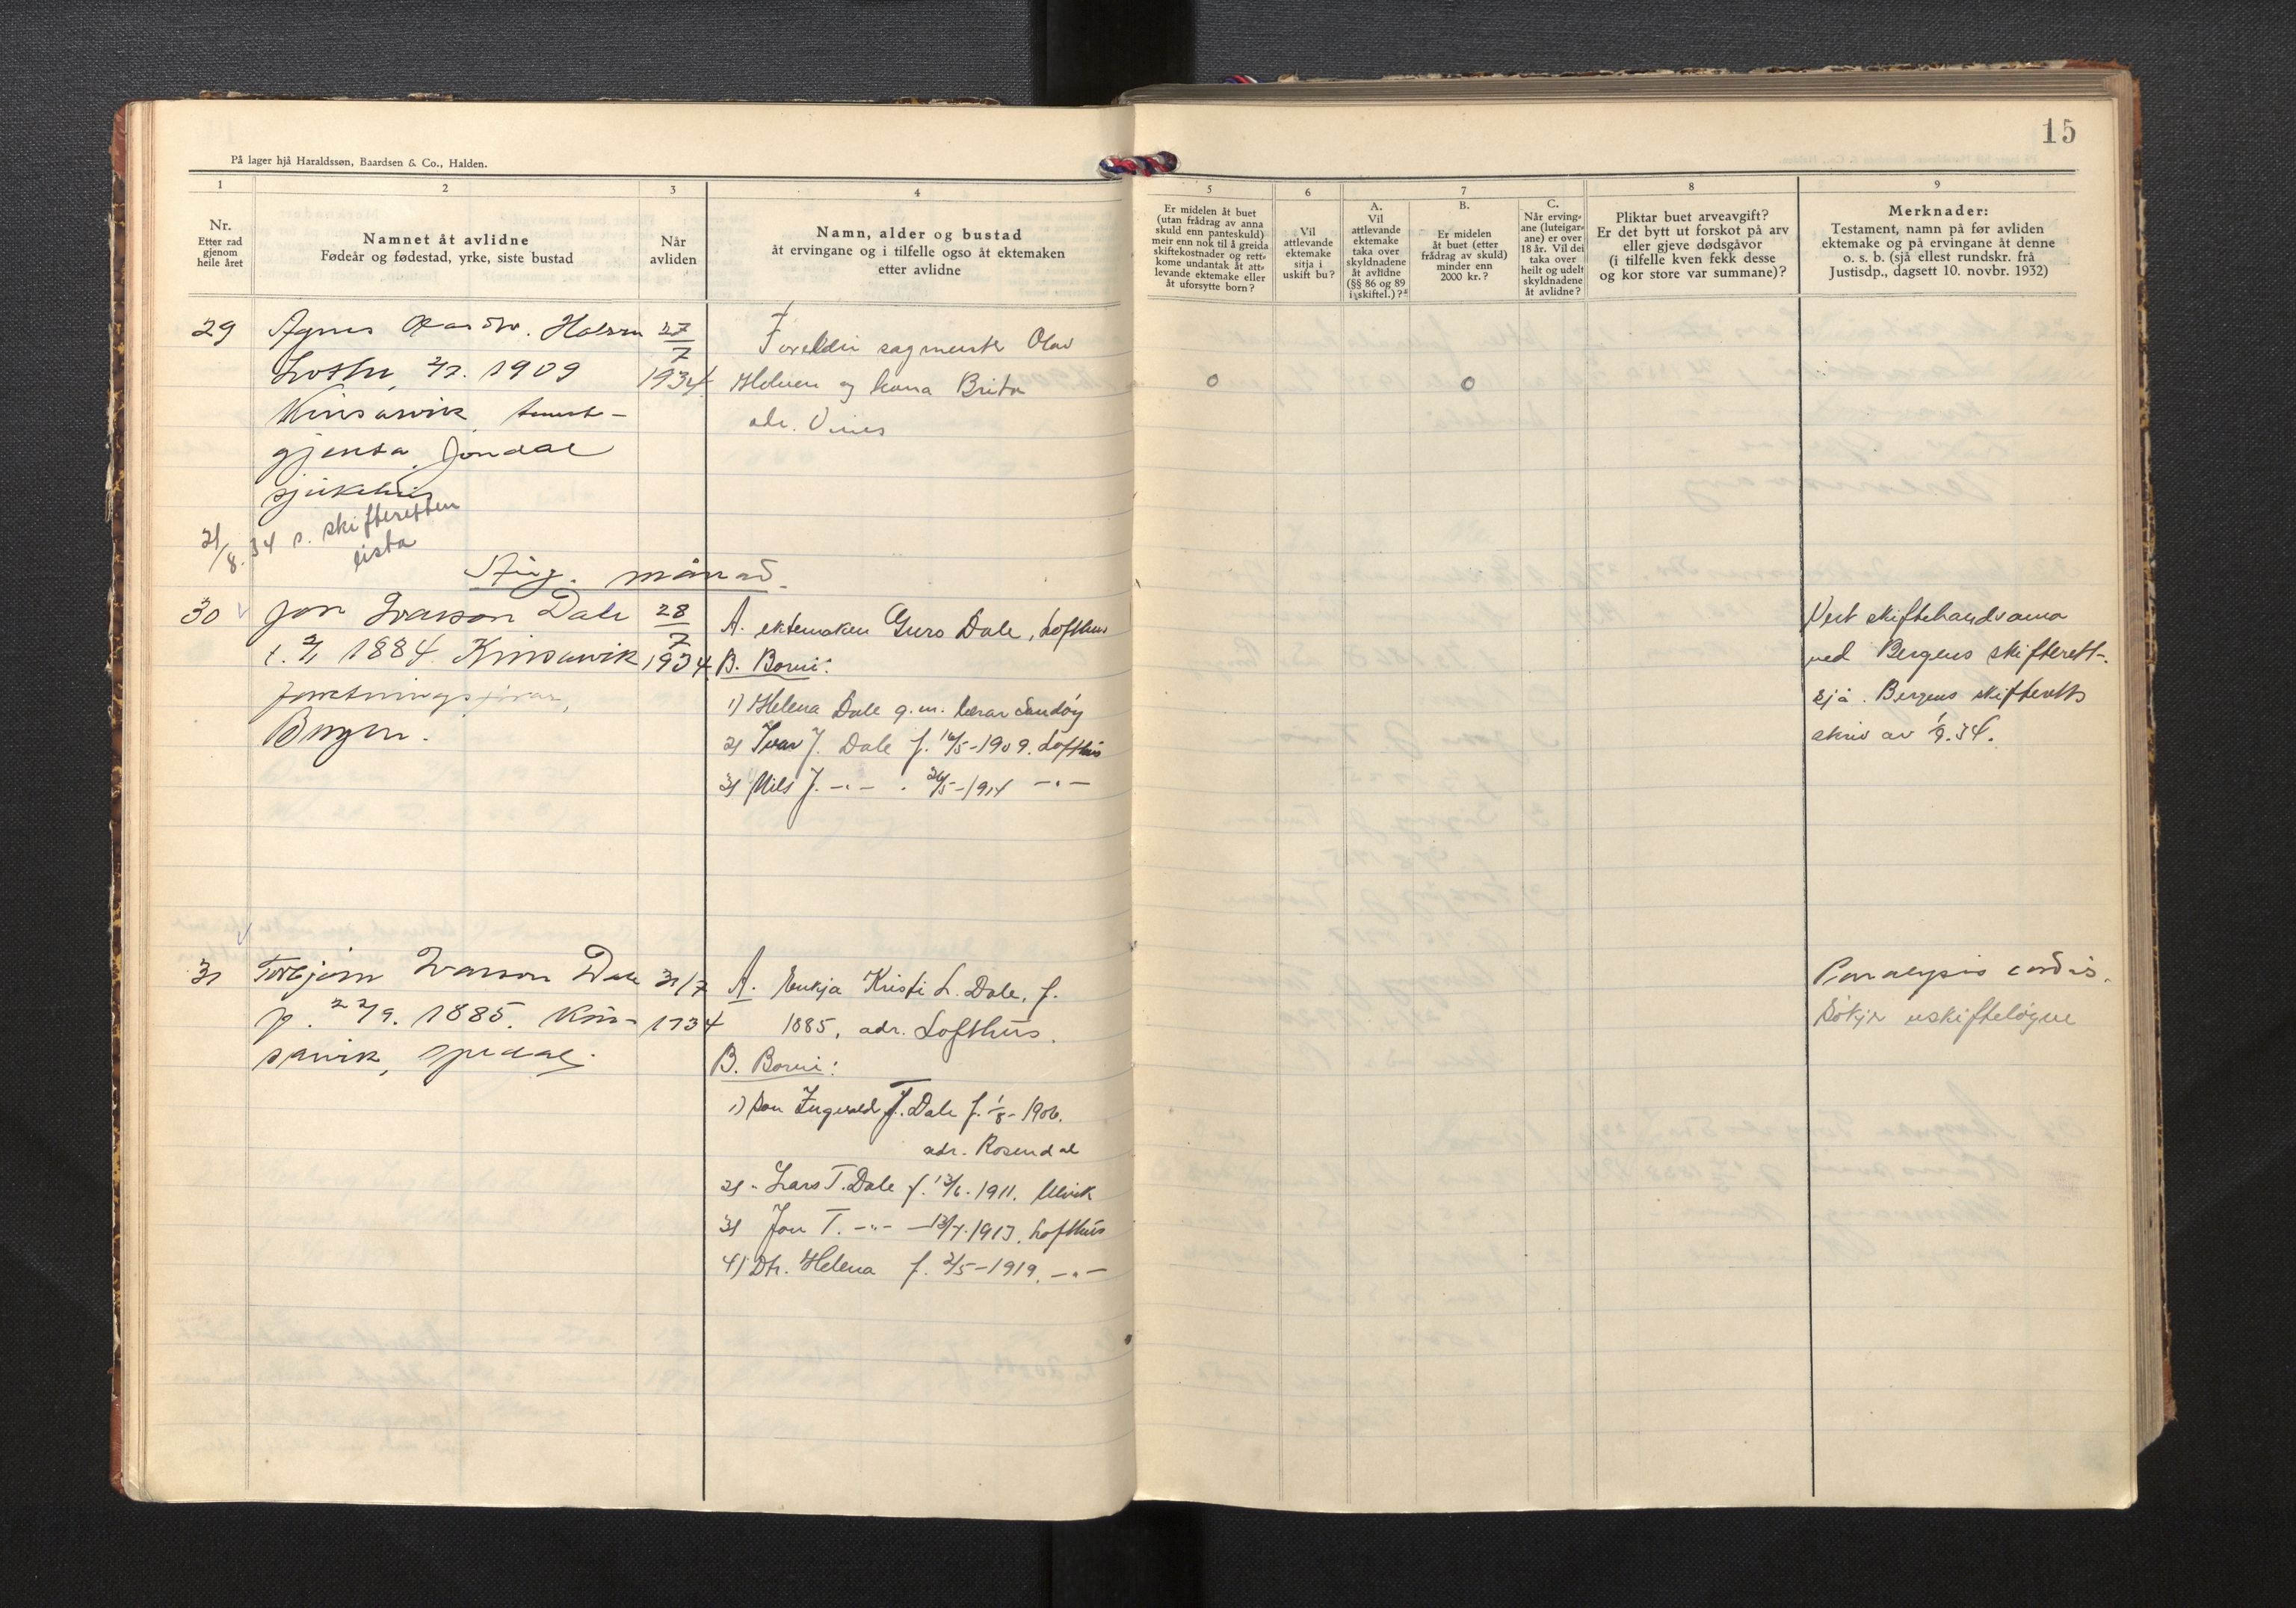 15
På lager hjå Haraldssøn, Baardsen & Co., Halden.
1
2
3
4
5
6
7
8
9
Nr.
Etter rad
gjenom
heile året
Namnet åt avlidne
Fødeår og fødestad, yrke, siste bustad
Når
avliden
Namn, alder og bustad
åt ervingane og i tilfelle ogso åt ektemaken
etter avlidne
Er midelen åt buet
(utan frådrag av anna
skuld enn panteskuld)
meir enn nok til å greida
skiftekostnader og rett-
kome undantak åt att-
levande ektemake eller
åt uforsytte born?
Vil
attlevande
ektemake
sitja i
uskift bu?
A.
Vil
attlevande
ektemake
taka over
skyldnadene
åt avlidne
(§§ 86 og 89
i skiftel.)?
B.
Er midelen
åt buet (etter
frådrag av skuld)
minder enn
2000 kr.?
C.
Når erving-
ane (luteigar-
ane) er over
18 år. Vil dei
taka over
heilt og udelt
skyldnadene
åt avlidne?
Pliktar buet arveavgift?
Er det bytt ut forskot på arv
eller gjeve dødsgåvor
(i tilfelle kven fekk desse
og kor store var summane)?
Merknader:
Testament, namn på før avliden
ektemake og på ervingane åt denne
o. s. b. (sjå ellest rundskr. frå
Justisdp., dagsett 10. novbr. 1932)
29 Agnes 27/7
1909 1934
Kinsarvik
gjenta, Jondal
sjukehus
Foreldri sagmeister Olav
Helven og kona Brita
adr. Vines
o o
21/8.34 s. skifteretten
lista
Aug. månad.
30 Jon Ivarson Dale 28/7
1884 Kinsarvik 1934
Bergen.
A. ektemaken Guro Dale, Lofthus
B. Borni:
1) Helena Dale g.m. lærar Sandøy
2) Ivar J. Dale f. 16/5-1909. Lofthus
3) Nils J. -"- . 26/5-1914 -"-
Vert skiftehandsama
ved Bergens skifterett-.
sjå. Bergens skifteretts
skriv av 1/9.34.
31 Torbjørn Ivarson Dale 31/7
f. 22/9. 1885. Kin- 1934
sarvik, Opedal.
A. Enkja Kristi L. Dale, f.
1885, adr. Lofthus.
B. Borni:
1) Son Ingvald T. Dale f. 1/8-1906.
adr. Rosendal
2) - Lars T. Dale f. 13/6. 1911. Ulvik
3) Jon T. -"- 1913. Lofthus
4) Dtr. Helena f. 2/5-1919. -"-
Paralysis cordis.
Søkje uskifteløyve